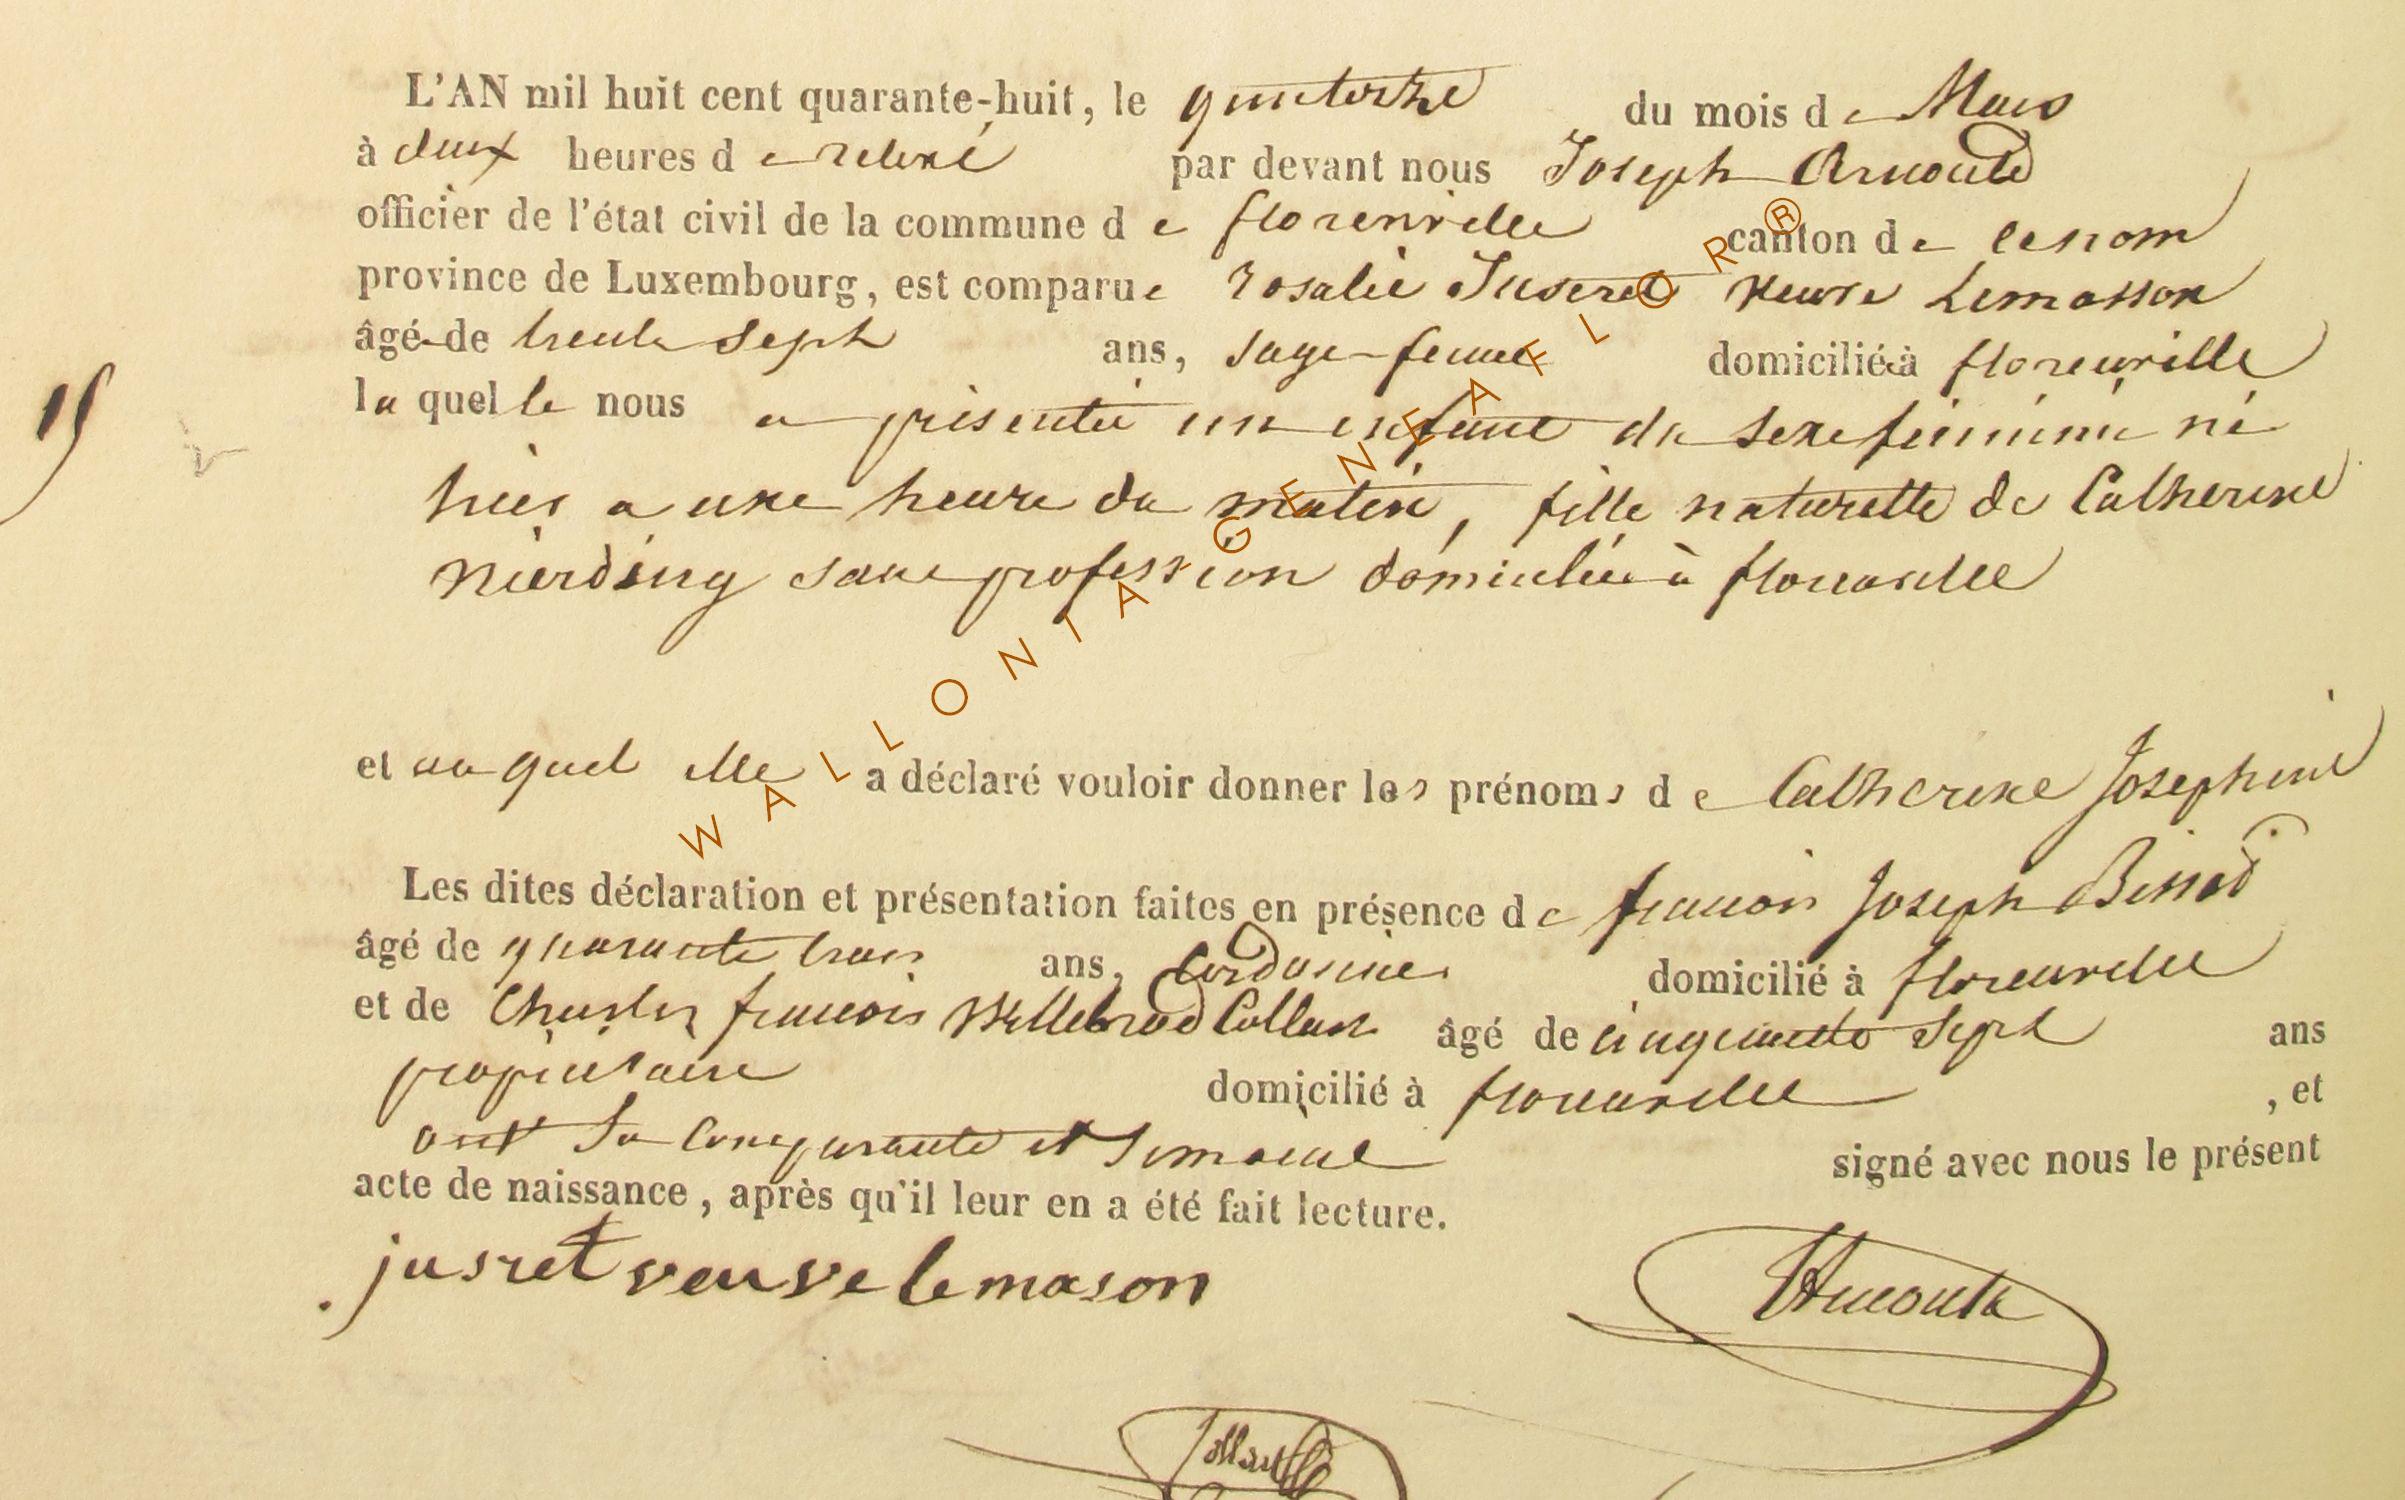 L'AN mil huit cent quarante-huit, le quatorze du mois de Mars
à deux heures de relevé par devant nous Joseph Arnould
officier de l'état civil de la commune de florenville canton de le nom
province de Luxembourg, est comparue Rosalie Jusseret veuve Lemasson
âgé de trente sept ans, sage-femme domiciliée à florenville
15
laquelle nous a présenté un enfant du sexe féminin né
hier a une heure du matin, fille naturelle de Catherine
Nierding sans profession domiciliée à florenville
et auquel elle a déclaré vouloir donner les prénoms de Catherine Josephine
Les dites déclaration et présentation faites en présence de francois Joseph
âgé de quarante trois ans, Cordonnier domicilié à florenville
et de Charles francois Willebrod Collard âgé de cinquante sept ans
propriétaire domicilié à florenville, et
ont la comparante et témoins signé avec nous le présent
acte de naissance, après qu'il leur en a été fait lecture.
jusret veuve lemason
Arnould
WALLONIA GENEAFLOR ®